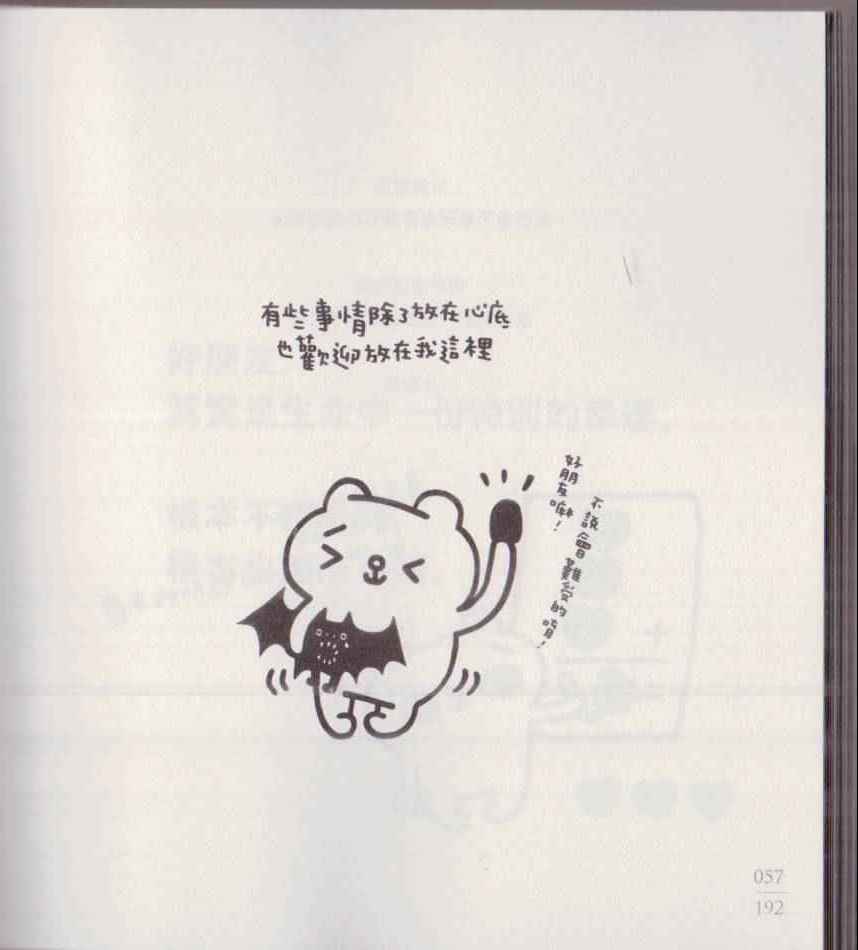 有些事情除了放在心底
也歡迎放在我這裡
好朋友嘛！
不說會難受的唷！
057
192